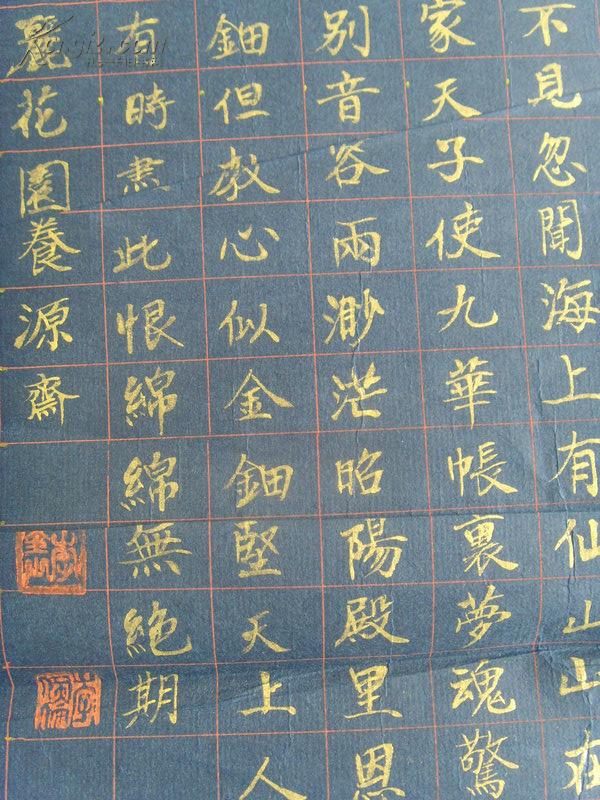 不見忽聞海上有仙山山在
家天子使九華帳裏夢魂驚
別音容兩渺茫昭陽殿里恩
鈿但教心似金鈿堅天上人
有時盡此恨綿綿無絕期
麗花園養源齋